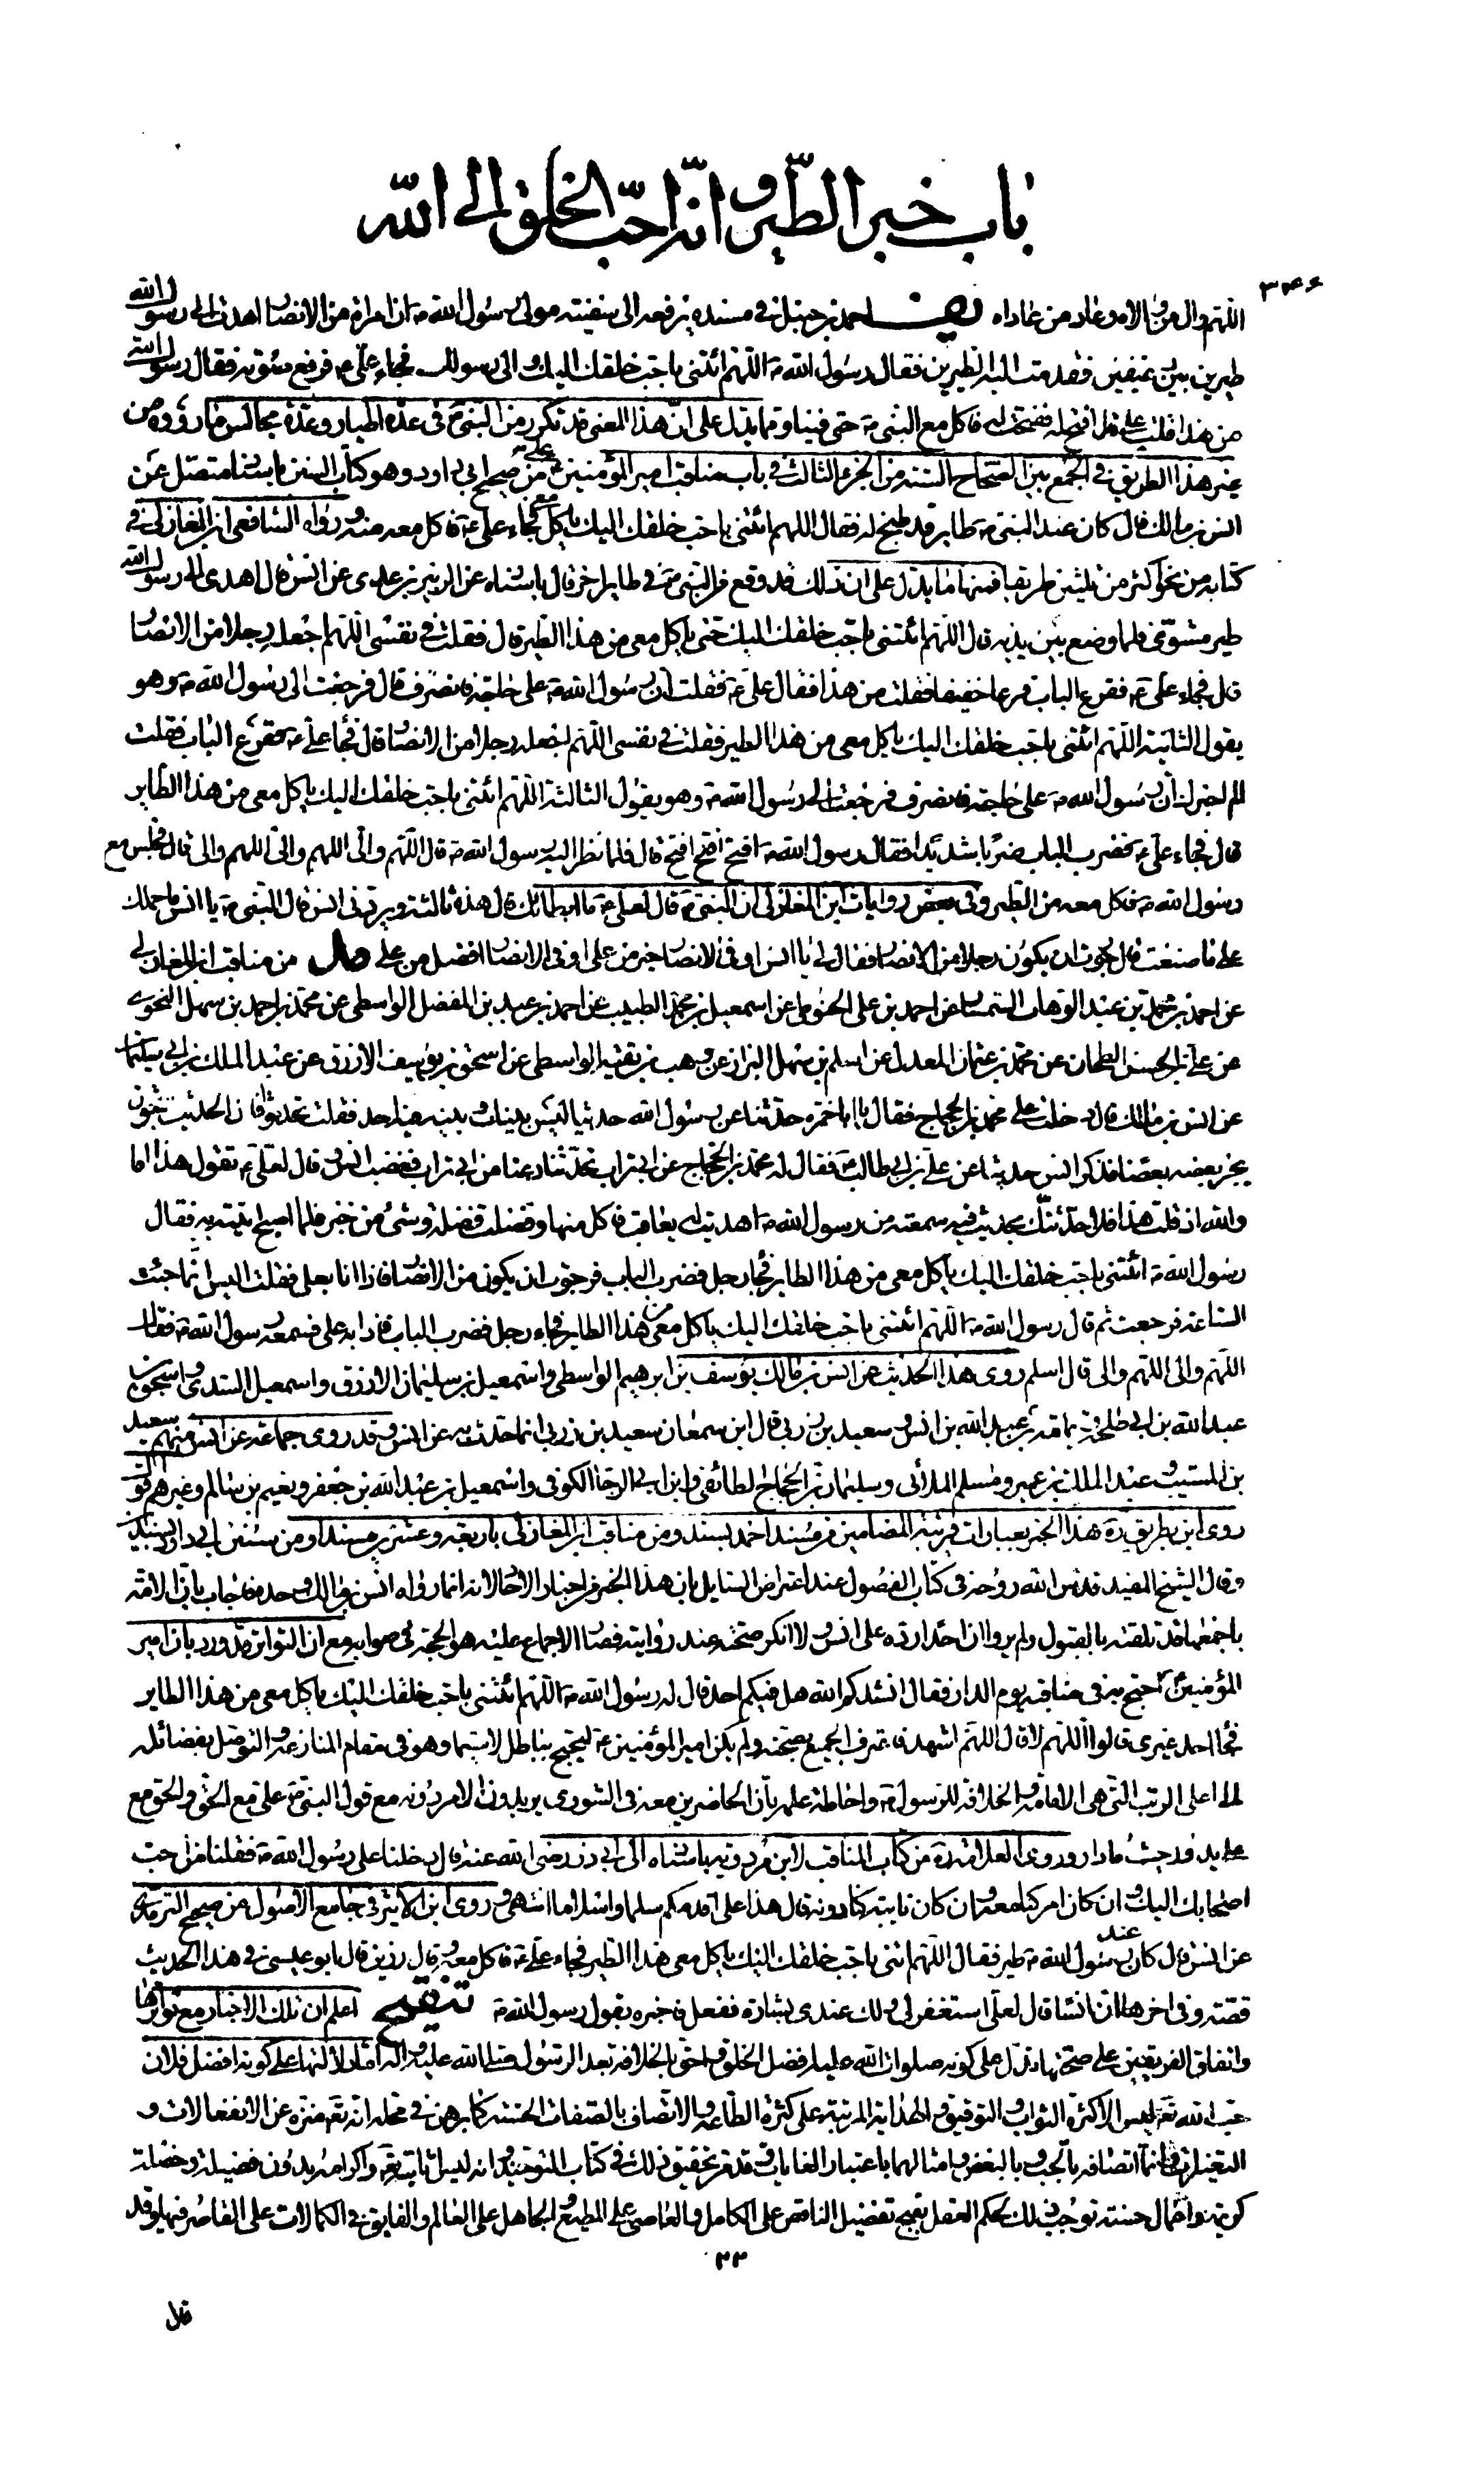 باب خبر الطير وانه احب الخلق الى الله
٣٤٤
اللهم وال من والاه وعاد من عاداه يف احمد بن حنبل في مسنده يرفعه الى سفينة مولى رسول الله ص ان امراة من الانصار اهدت الى رسول الله
طيرين بين رغيفين فقدمت اليه الطيرين فقال رسول الله ص اللهم ائتني باحب خلقك اليك والى رسولك فجاء علي ع فرفع صوته فقال رسول الله
من هذا قلت علي قال افتح له ففتحت له فاكل مع النبي ص حتى فنيا ومما يدل على ان هذا المعنى قد تكرر من النبي ص في عدة اطيار وعدة مجالس ما رووه من
غير هذا الطريق في الجمع بين الصحاح الستة من الجزء الثالث في باب مناقب امير المؤمنين علي ع من صحيح ابي داود وهو كتاب السنن باسناد متصل عن
انس بن مالك قال كان عند النبي ص طاير قد طبخ له فقال اللهم ائتني باحب خلقك اليك ياكل معي فجاء علي ع فاكل معه منه ورواه الشافعي ابن المغازلي في
كتابه من نحو اكثر من ثلثين طريقا فمنها ما يدل على ان ذلك قد وقع من النبي ص في طاير اخر قال باسناده عن الزبير بن عدي عن انس قال اهدي الى رسول الله
طير مشوي فلما وضع بين يديه قال اللهم ائتني باحب خلقك اليك حتى ياكل معي من هذا الطير قال فقلت في نفسي اللهم اجعله رجلا من الانصار
قال فجاء علي ع فقرع الباب قرعا خفيفا فقلت من هذا فقال علي ع فقلت ان رسول الله ص على حاجة فانصرف قال فرجعت الى رسول الله ص وهو
يقول الثانية اللهم ائتني باحب خلقك اليك ياكل معي من هذا الطير فقلت في نفسي اللهم اجعله رجلا من الانصار قال فجاء علي ع فقرع الباب فقلت
الم اخبرك ان رسول الله ص على حاجة فانصرف فرجعت الى رسول الله ص وهو يقول الثالثة اللهم ائتني باحب خلقك اليك ياكل معي من هذا الطاير
قال فجاء علي ع فضرب الباب ضربا شديدا فقال رسول الله ص افتح افتح افتح قال فلما نظر اليه رسول الله ص قال اللهم والي اللهم والي اللهم والي قال فجلس مع
رسول الله ص فاكل معه من الطير وفي بعض روايات ابن المغازلي ان النبي ص قال لعلي ع ما ابطاك قال هذه ثالثة ويردني انس قال النبي ص يا انس ما حملك
على ما صنعت قال رجوت ان يكون رجلا من الانصار فقال لي يا انس او في الانصار خير من علي او في الانصار افضل من علي من مناقب ابن المغازلي
عن احمد بن محمد بن عبد الوهاب السمسار عن احمد بن علي عن اسمعيل بن محمد الطبيب عن احمد بن عبيد بن المفضل الواسطي عن محمد بن احمد بن سهل النحوي
عن علي بن الحسن الطحان عن محمد بن عثمان المعدل عن اسلم بن سهل البزاز عن وهب بن بقية الواسطي عن اسحق بن يوسف الازرق عن عبد الملك بن ابي سليمان
عن انس بن مالك قال دخلت على محمد بن الحجاج فقال يا ابا حمزه حدثنا عن رسول الله حديثا ليس بينك وبينه فيه احد فقلت تحدثوا فان الحديث شجون
يجر بعضه بعضا فذكر انس حديثا عن علي بن ابي طالب ع فقال له محمد بن الحجاج عن ابي تراب تحدثنا دعنا من ابي تراب فغضب انس وقال لعلي ع تقول هذا اما
والله اذ قلت هذا فلاحدثنك بحديث فيه سمعته من رسول الله ص اهديت له يعاقيب فاكل منها وفضلت فضلة وشئ من خبز فلما اصبح اتيته به فقال
رسول الله ص ائتني باحب خلقك اليك ياكل معي من هذا الطاير فجاء رجل فضرب الباب فرجوت ان يكون من الانصار فاذا انا بعلي فقلت اليس انما جئت
الساعة فرجعت ثم قال رسول الله ص اللهم ائتني باحب خلقك اليك ياكل معي من هذا الطاير فجاء رجل فضرب الباب فاذا به علي فسمعه رسول الله ص فقال
اللهم والي اللهم والي قال اسلم روى هذا الحديث عن انس بن مالك يوسف بن ابرهيم الواسطي واسمعيل بن سليمان الازرق واسمعيل السدي واسحق بن
عبد الله بن ابي طلحة وثمامة بن عبد الله بن انس وسعيد بن زربي قال ابن سمعان سعيد بن زربي انما حدث به عن انس وقد روى جماعة عن انس منهم سعيد
بن المسيب وعبد الملك بن عمير ومسلم الملائي وسليمان بن الحجاج الطائفي وابن ابي الرجا الكوفي واسمعيل بن عبد الله بن جعفر ونعيم بن سالم وغيرهم
روى ابن بطريق ره هذا الخبر بعبارات قريبة المضامين من مسند احمد بسند ومن مناقب ابن المغازلي باربعة وعشرين سندا ومن سنن ابي داود بسندين
وقال الشيخ المفيد قدس الله روحه في كتاب الفصول عند اعتراض السايل بان هذا الخبر من اخبار الاحاد لانه انما رواه انس بن مالك وحده فاجاب بان الامة
باجمعها قد تلقته بالقبول ولم يروا ان احدا رده على انس ولا انكر صحته عند روايته فصار الاجماع عليه هو الحجة في صوابه مع ان التواتر قد ورد بان امير
المؤمنين ع احتج به في مناقبه يوم الدار فقال انشدكم الله هل فيكم احد قال له رسول الله ص اللهم ائتني باحب خلقك اليك ياكل معي من هذا الطاير
فجاء احد غيري قالوا اللهم لا قال اللهم اشهد فاعترف الجميع بصحته ولم يكن امير المؤمنين ع ليحتج بباطل لا سيما وهو في مقام المنازعة والتوصل بفضائله
الى اعلى الرتب التي هي الامامة والخلافة للرسول ص واحاطة علمه بان الحاضرين معه في الشورى يريدون الامر دونه مع قول النبي ص علي مع الحق والحق مع
علي يدور حيث ما دار وروى العلامة ره من كتاب المناقب لابن مردويه باسناده الى ابي ذر رضي الله عنه قال دخلنا على رسول الله ص فقلنا من احب
اصحابك اليك وان كان امر كنا معه وان كان نايبة كنا دونه قال هذا علي اقدمكم سلما واسلاما انتهى وروى ابن الاثير في جامع الاصول من صحيح الترمذي
عن انس قال كان عند رسول الله ص طير فقال اللهم ائتني باحب خلقك اليك ياكل معي هذا الطير فجاء علي ع فاكل معه قال رزين قال ابو عيسى في هذا الحديث
قصة وفي اخرها ان انسا قال لعلي استغفر لي ولك عندي بشارة ففعل فاخبره بقول رسول الله ص تنقيح اعلم ان تلك الاخبار مع تواترها
واتفاق الفريقين على صحتها تدل على كونه صلوات الله عليه افضل الخلق واحق بالخلافة بعد الرسول صلى الله عليه واله اما دلالتها على كونه افضل فلان
حب الله تعالى ليس الا كثرة الثواب والتوفيق والهداية المترتبة على كثرة الطاعة والاتصاف بالصفات الحسنة كما برهن في محله انه تعالى منزه عن الانفعالات و
التغيرات وانما اتصافه بالحب والبغض وامثالهما باعتبار الغايات وقد مر تحقيق ذلك في كتاب التوحيد وانه ليس اثابته تعالى واكرامه بدون فضيلة وخصلة
كريمة واعمال حسنة توجب ذلك بحكم العقل بقبح تفضيل الناقص على الكامل والعاصي على المطيع والجاهل على العالم والفايق في الكمالات على القاصر فيها وقد
٢٢
قال